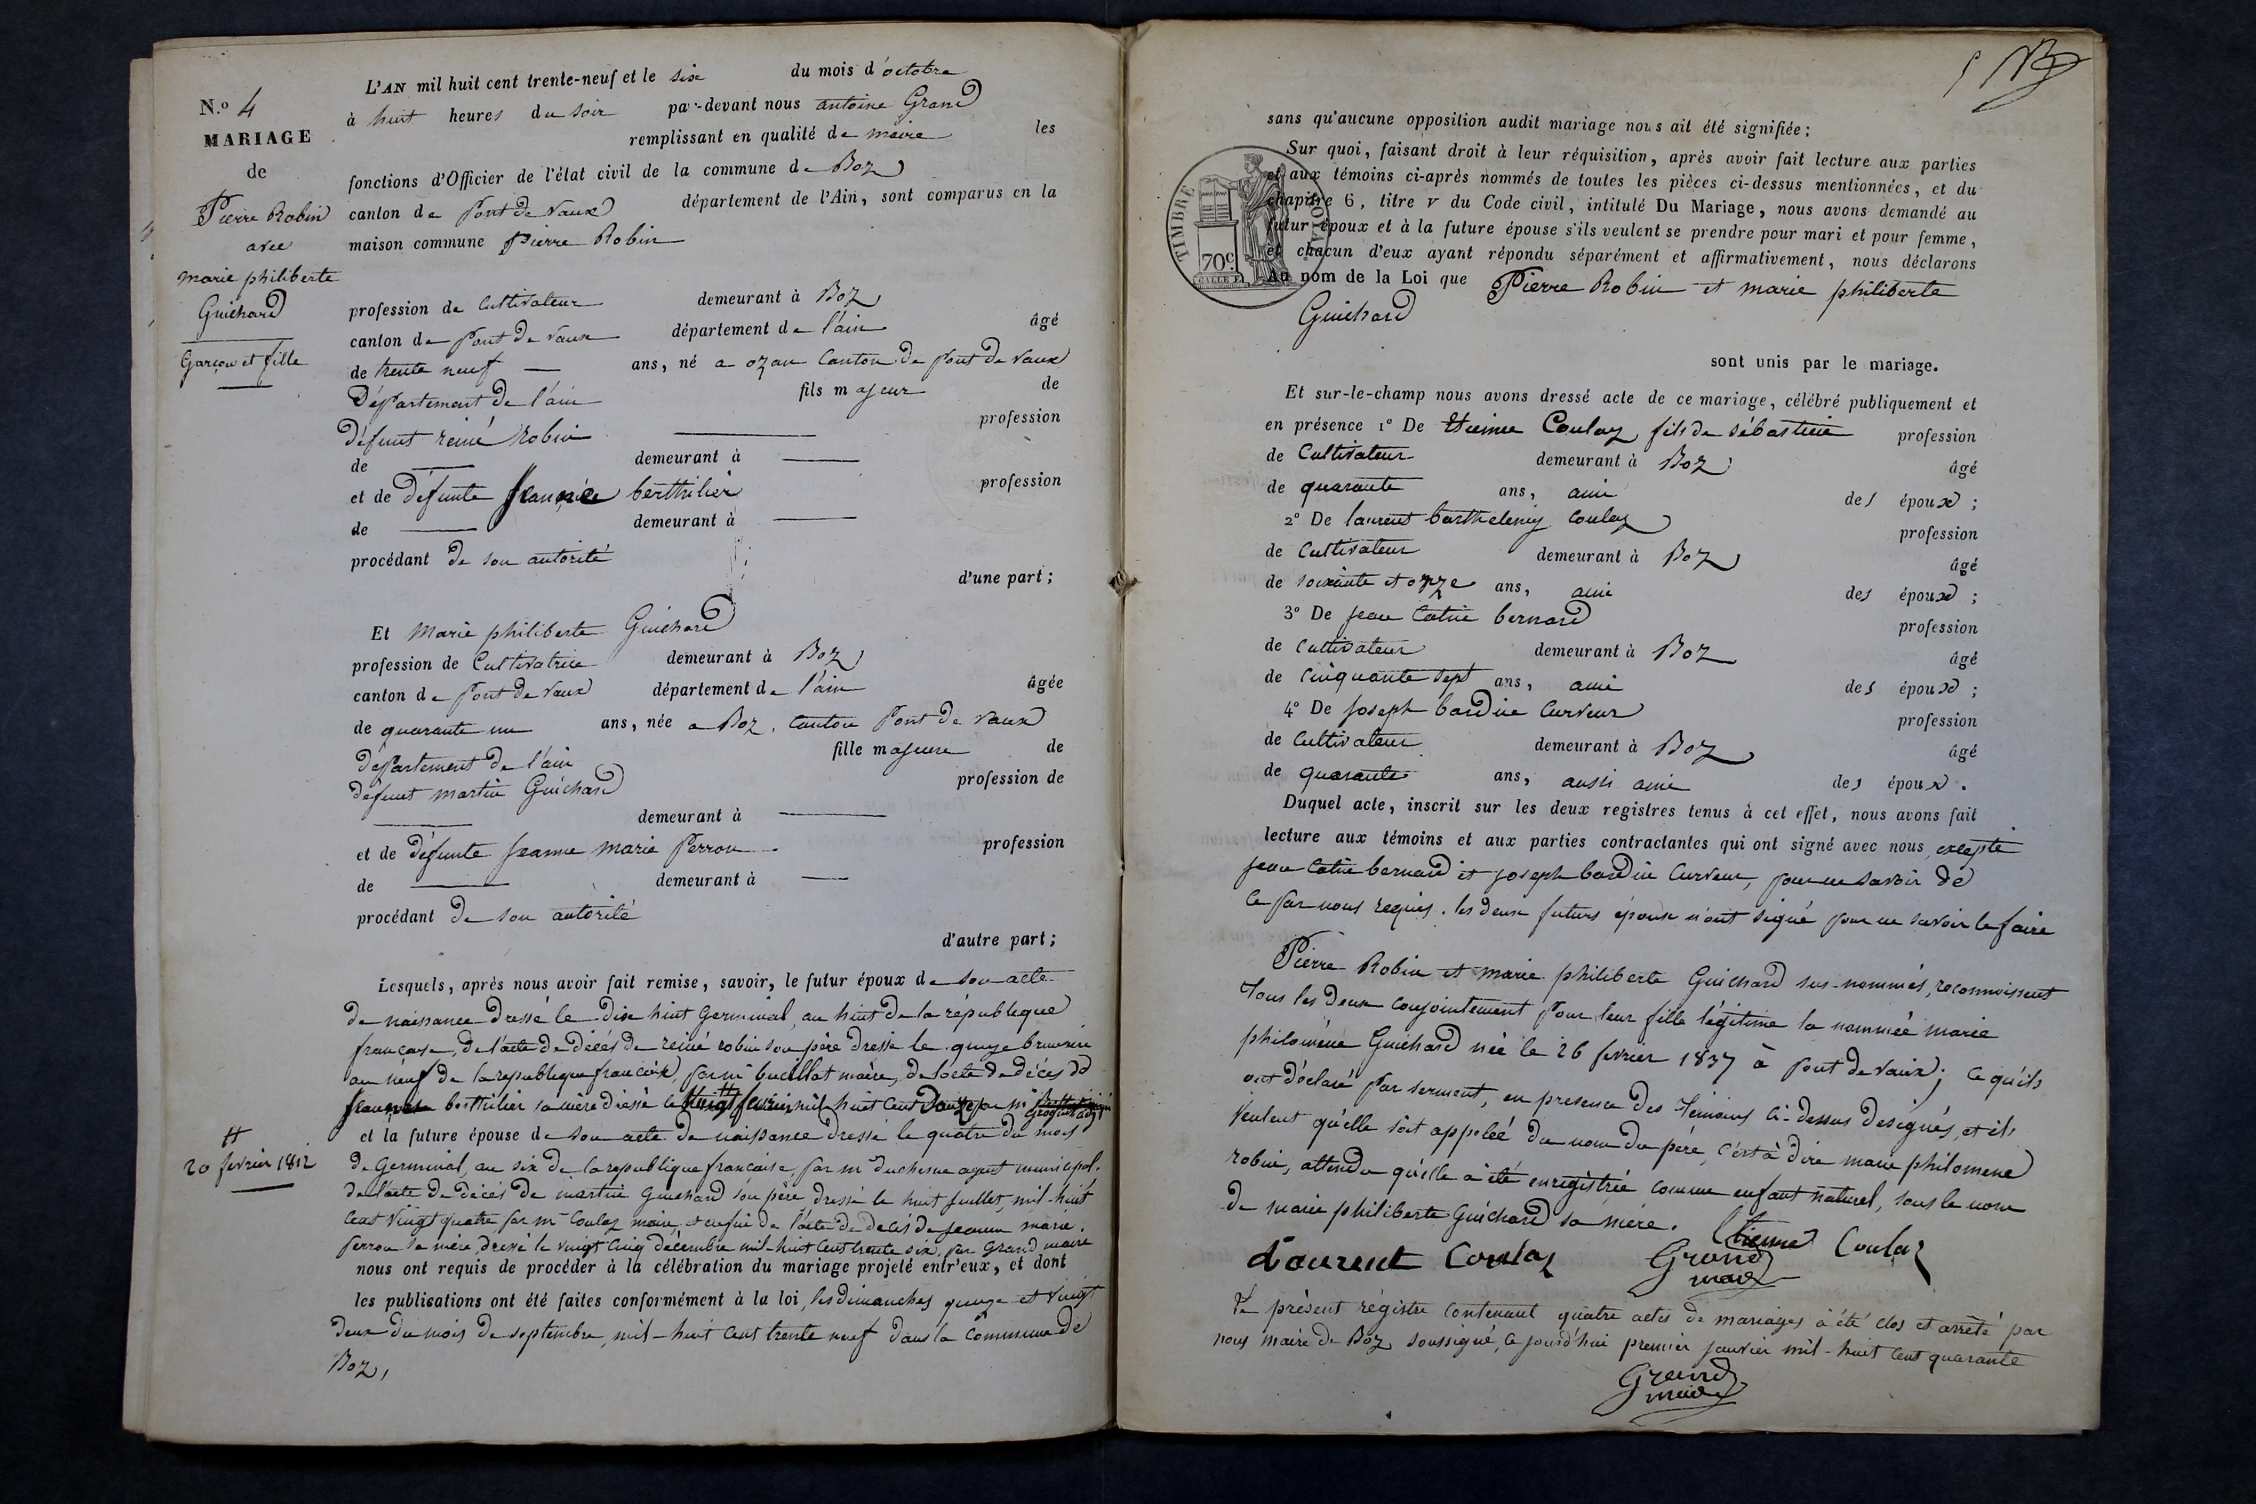 N.º 4
MARIAGE
de
Pierre Robin
avec
marie philiberte
Guichard
Garçon et fille
20 fevrier 1812
L'AN mil huit cent trente-neuf et le six du mois d'octobre
à huit heures du soir par-devant nous antoine Grand
remplissant en qualité de maire les
fonctions d'Officier de l'état civil de la commune de Boz
canton de Pont de Vaux département de l'Ain, sont comparus en la
maison commune Pierre Robin
profession de Cultivateur demeurant à Boz
canton de Pont de Vaux département de l'ain âgé
de trente neuf ans, né a ozan Canton de Pont de Vaux
Département de l'ain fils majeur de
défunt reiné Robin profession
de demeurant à
et de défunte berthilier profession
de demeurant à
procédant de son autorité
d'une part;
Et Marie philiberte Guichard
profession de Cultivatrice demeurant à Boz
canton de Pont de Vaux département de l'ain âgée
de quarante un ans, née a Boz, Canton Pont de Vaux
département de l'ain fille majeure de
défunt martin Guichard profession de
demeurant à
et de défunte Jeanne Marie Perron profession
de demeurant à
procédant de son autorité
d'autre part;
Lesquels, après nous avoir fait remise, savoir, le futur époux de son acte
de naissance dressé le dix huit Germinal, an huit de la république
française, de l'acte de décès de reiné robin son père dressé le quinze brumaire
an neuf de la republique francaise, par mr maire, de l'acte de décès de
berthilier sa mère dressé le fevrier mil huit cent Douze par mr
et la future épouse de son acte de naissance dressé le quatre du mois
de Germinal, an six de la republique française, par mr duchesne agent municipal.
de l'acte de décès de martin Guichard son père dressé le huit Juillet, mil-huit
Cent vingt quatre par mr Coulaz maire, et enfin de l'acte de décès de Jeanne marie
perron sa mère, dressé le vingt cinq décembre mil-huit Cent trente six, par Grand maire
nous ont requis de procéder à la célébration du mariage projeté entr'eux, et dont
les publications ont été faites conformément à la loi, les dimanches quinze et vingt
deux du mois de septembre, mil-huit Cent trente neuf dans la Commune de
Boz,
5
sans qu'aucune opposition audit mariage nous ait été signifiée;
Sur quoi, faisant droit à leur réquisition, après avoir fait lecture aux parties
et aux témoins ci-après nommés de toutes les pièces ci-dessus mentionnées, et du
chapitre 6, titre V du Code civil, intitulé Du Mariage, nous avons demandé au
futur époux et à la future épouse s'ils veulent se prendre pour mari et pour femme,
et chacun d'eux ayant répondu séparément et affirmativement, nous déclarons
Au nom de la Loi que Pierre Robin et marie philiberte
Guichard
TIMBRE ROYAL
70c
sont unis par le mariage.
Et sur-le-champ nous avons dressé acte de ce mariage, célébré publiquement et
en présence 1º De Etienne Coulaz fils de sébastien profession
de Cultivateur demeurant à Boz âgé
de quarante ans, ami des époux;
2º De laurent barthelemy Coulaz profession
de Cultivateur demeurant à Boz âgé
de soixante et onze ans, ami des époux;
3º De Jean Catin bernard profession
de Cultivateur demeurant à Boz âgé
de Cinquante Sept ans, ami des époux;
4º De Joseph bardin Curveur profession
de Cultivateur demeurant à Boz âgé
de quarante ans, aussi ami des époux.
Duquel acte, inscrit sur les deux registres tenus à cet effet, nous avons fait
lecture aux témoins et aux parties contractantes qui ont signé avec nous, excepté
Jean Catin bernard et Joseph bardin Curveur, pour ne savoir de
Ce par nous requis. les deux futurs époux n'ont signé pour ne savoir le faire
Pierre Robin et marie philiberte Guichard sus-nommés, reconnoissent
tous les deux Conjointement pour leur fille légitime la nommée marie
philomène Guichard née le 26 fevrier 1837 à Pont de Vaux; Ce qu'ils
ont déclaré par serment, en presence des témoins Ci-dessus designés, et ils
veulent qu'elle soit appelée du nom du père, C'est à dire marie philomene
robin, attendu qu'elle a été enregistrée comme enfant naturel, sous le nom
de marie philiberte Guichard sa mère.
Etienne Coulaz
Laurent Coulaz Grand
maire
Le présent registre Contenant quatre actes de mariages a été clos et arrêté par
nous maire de Boz soussigné, Ce jourd'hui premier Janvier mil-huit Cent quarante
Grand
maire